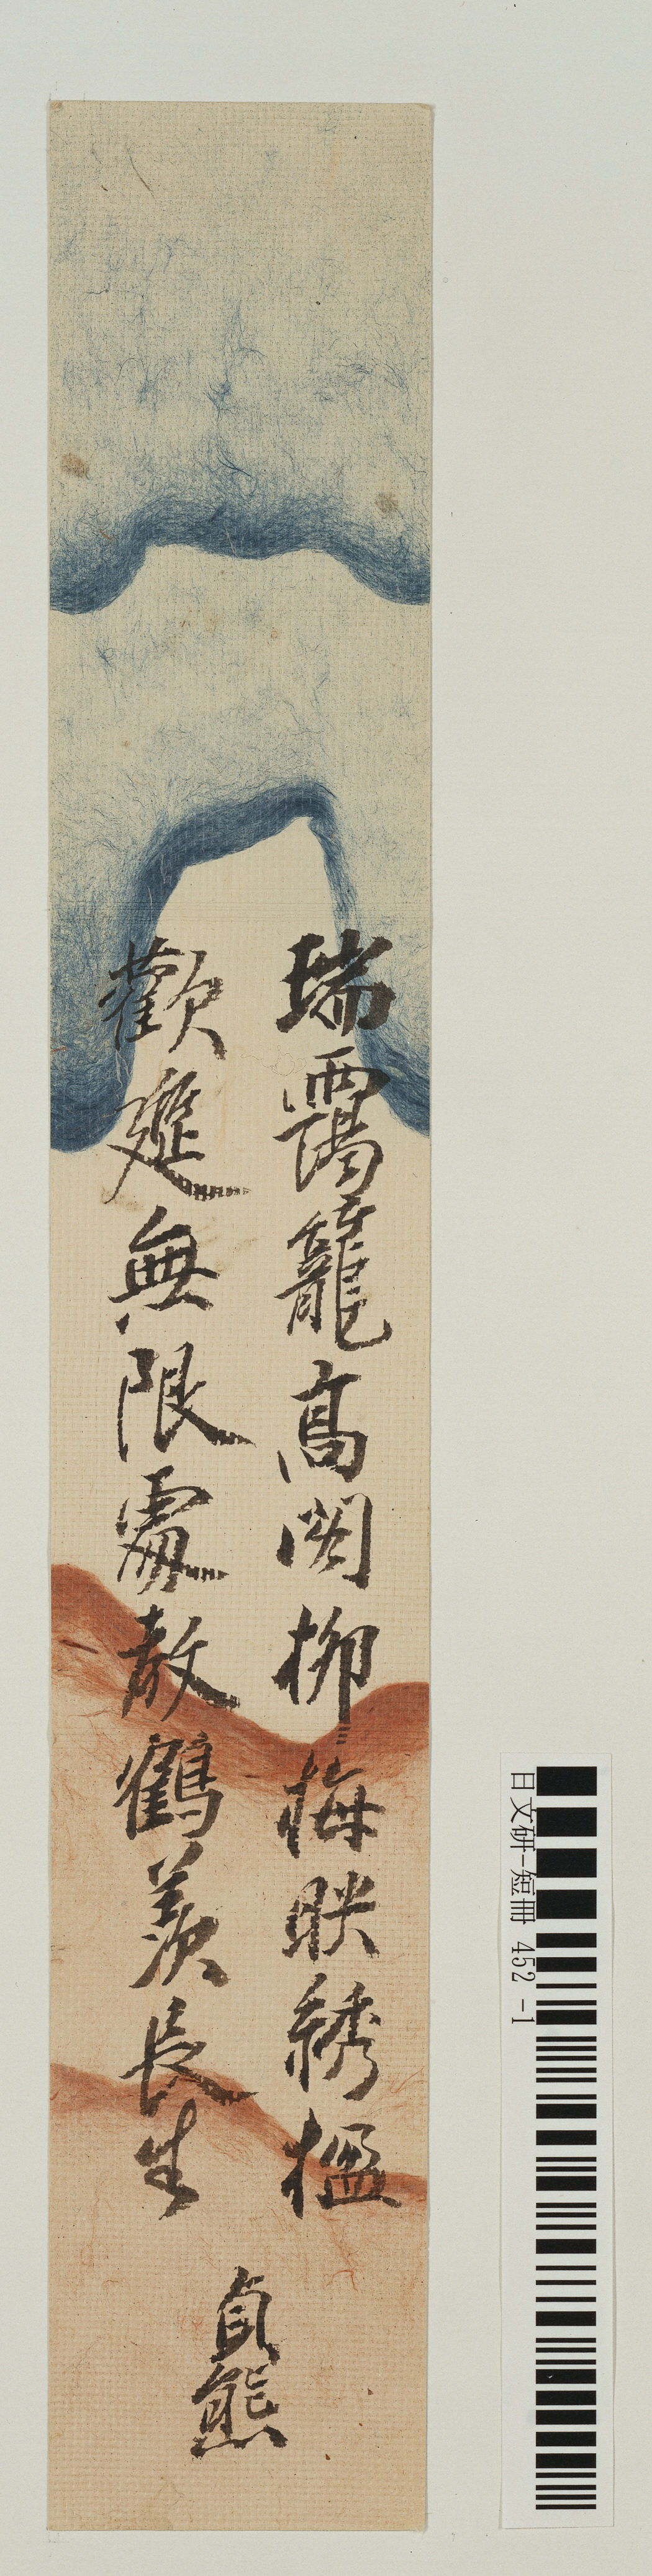 瑞靄籠高閣柳梅映綉楹
歡莚無限處敖鶴羨長生
貞熊
日文研-短冊 452 -1